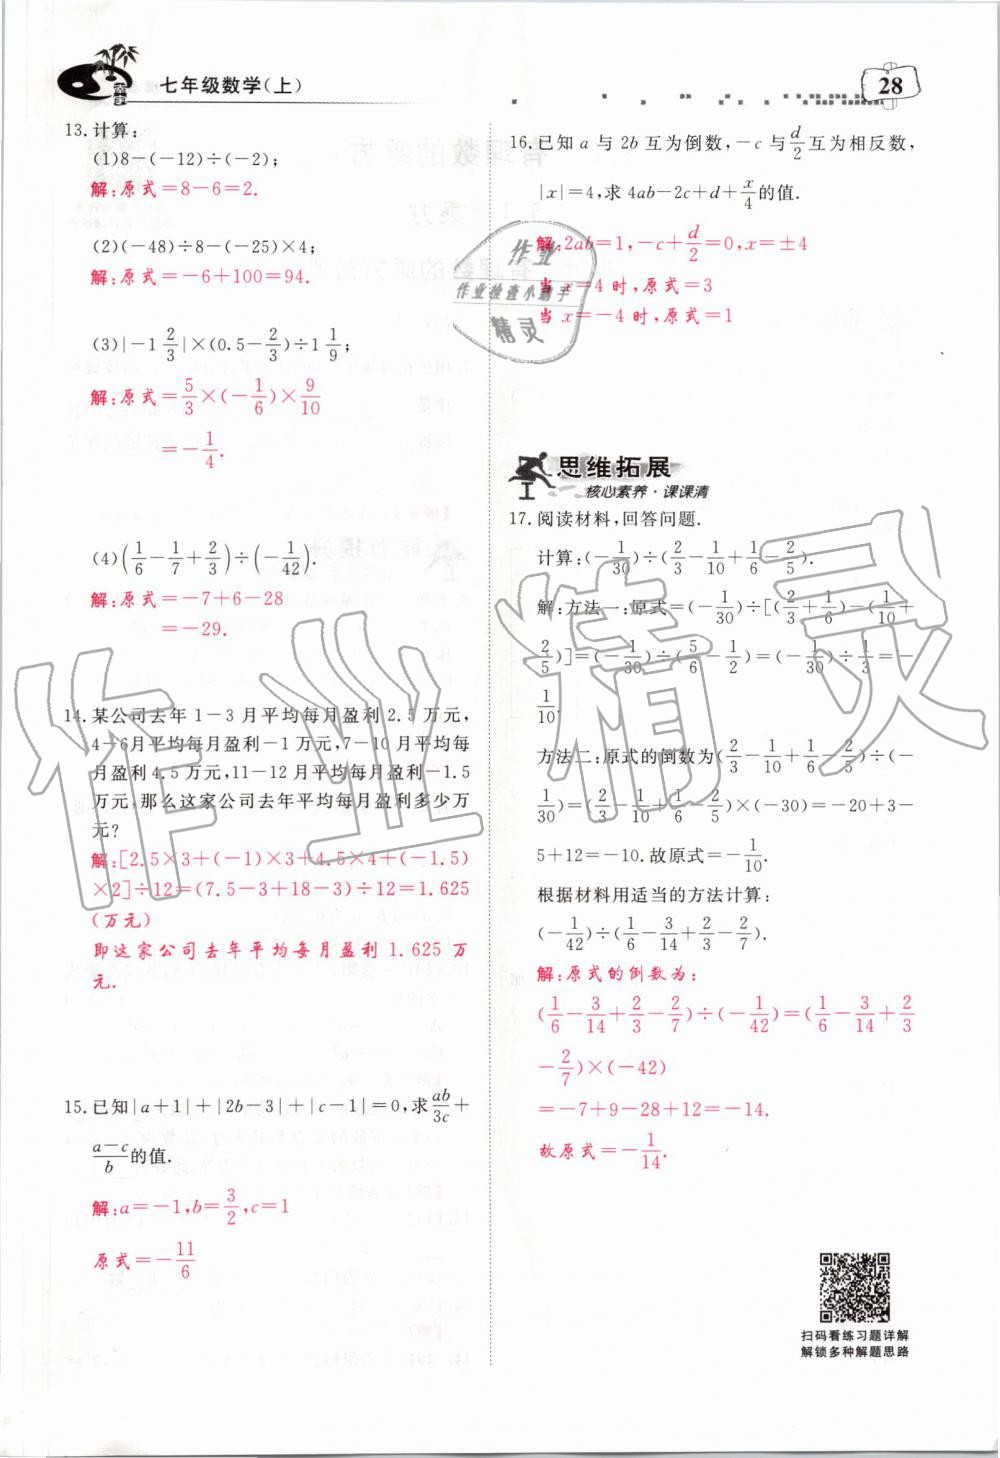 七年级数学(上)
28
13.计算:
(1)8-(-12)÷(-2);
解:原式=8-6=2.
(2)(-48)÷8-(-25)×4;
解:原式=-6+100=94.
(3)|-1 2/3|×(0.5-2/3)÷1 1/9;
解:原式=5/3×(-1/6)×9/10
=-1/4.
(4)(1/6-1/7+2/3)÷(-1/42).
解:原式=-7+6-28
=-29.
14.某公司去年1-3月平均每月盈利2.5万元,
4-6月平均每月盈利-1万元,7-10月平均每
月盈利4.5万元,11-12月平均每月盈利-1.5
万元,那么这家公司去年平均每月盈利多少万
元?
解:[2.5×3+(-1)×3+4.5×4+(-1.5)
×2]÷12=(7.5-3+18-3)÷12=1.625
(万元)
即这家公司去年平均每月盈利1.625万
元.
15.已知|a+1|+|2b-3|+|c-1|=0,求ab/3c+
(a-c)/b的值.
解:a=-1,b=3/2,c=1
原式=-11/6
16.已知a与2b互为倒数,-c与d/2互为相反数,
|x|=4,求4ab-2c+d+x/4的值.
解:2ab=1,-c+d/2=0,x=±4
当x=4时,原式=3
当x=-4时,原式=1
作业
作业检查小助手
精灵
思维拓展
核心素养·课课清
17.阅读材料,回答问题.
计算:(-1/30)÷(2/3-1/10+1/6-2/5).
解:方法一:原式=(-1/30)÷[(2/3+1/6)-(1/10+
2/5)]=(-1/30)÷(5/6-1/2)=(-1/30)÷1/3=-
1/10.
方法二:原式的倒数为(2/3-1/10+1/6-2/5)÷(-
1/30)=(2/3-1/10+1/6-2/5)×(-30)=-20+3-
5+12=-10.故原式=-1/10.
根据材料用适当的方法计算:
(-1/42)÷(1/6-3/14+2/3-2/7).
解:原式的倒数为:
(1/6-3/14+2/3-2/7)÷(-1/42)=(1/6-3/14+2/3
-2/7)×(-42)
=-7+9-28+12=-14.
故原式=-1/14.
扫码看练习题详解
解锁多种解题思路
作业精灵